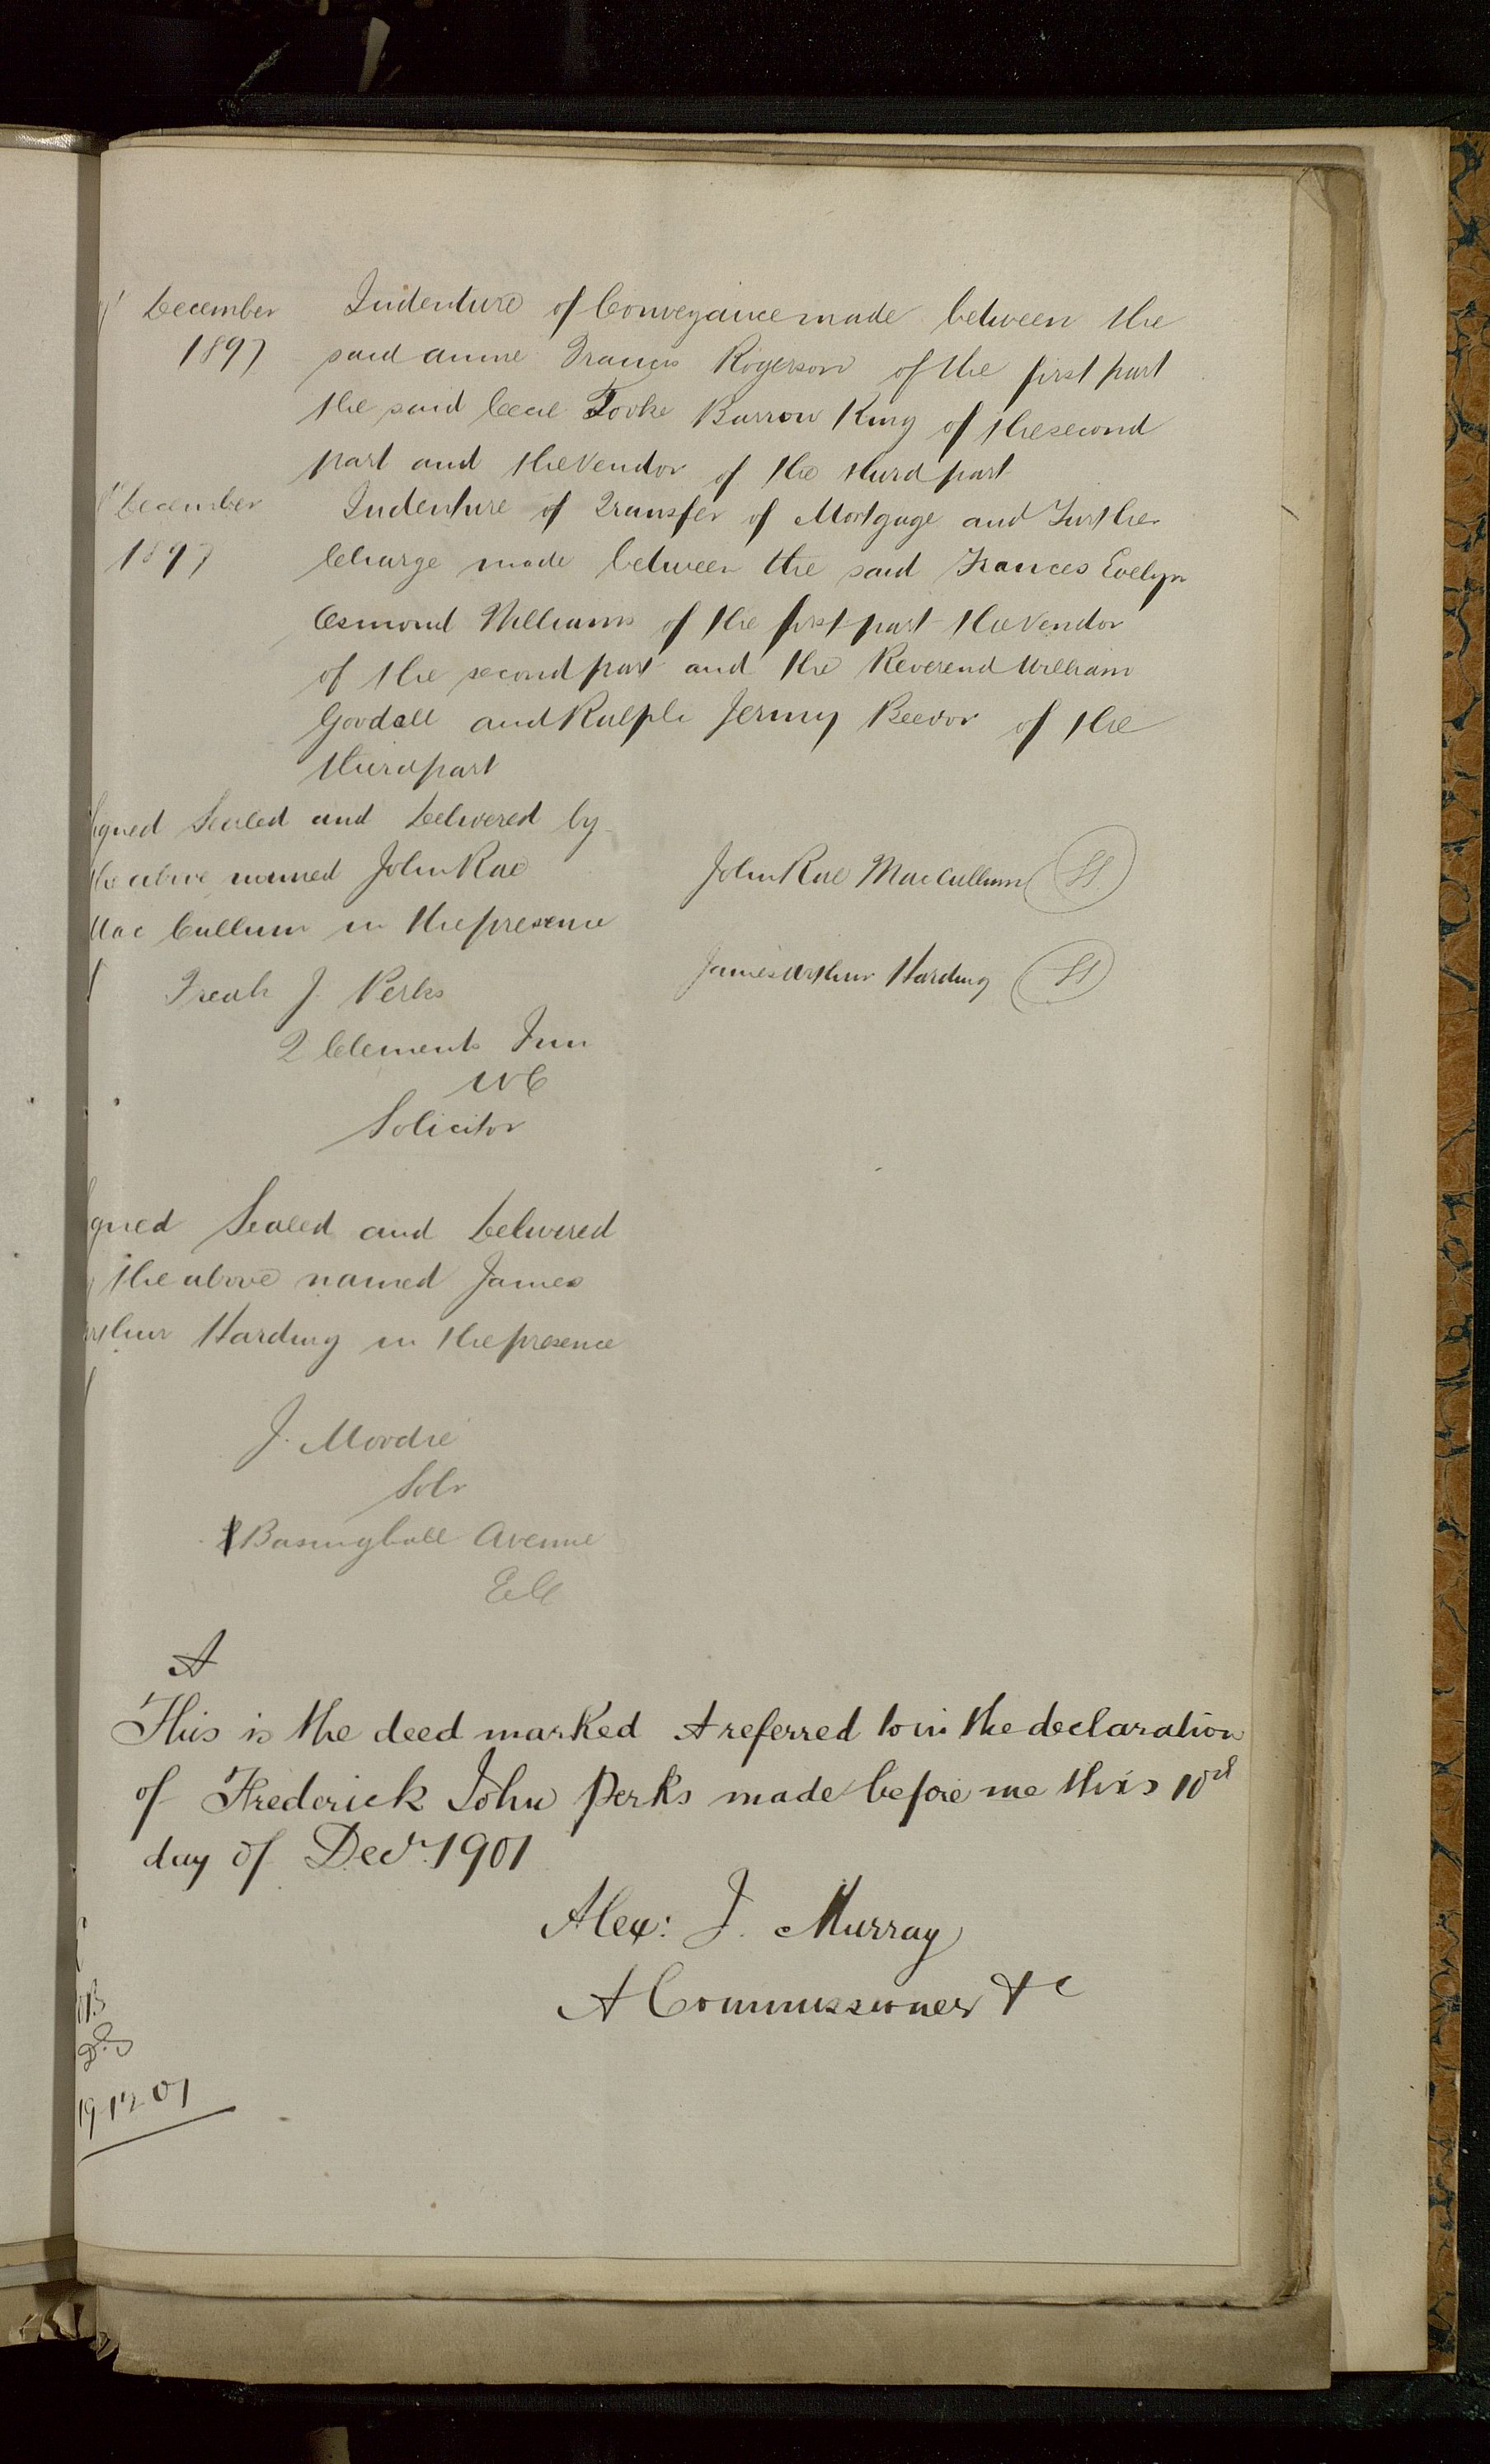 December Indenture of Conveyance made between the
1897 said Anne Francis Rogerson of the first part
the said Cecil Tooke Barrow King of the second
part and the Vendor of the third part
December Indenture of Transfer of Mortgage and Further
1897 Charge made between the said Frances Evelyn
Osmond Williams of the first part the Vendor
of the second part and the Reverend William
Goodall and Ralph Jermy Beevor of the
third part
igned Sealed and Delivered by
the above named John Rae John Rae MacCullum LS
Mac Cullum in the presence
f James Arthur Harding LS
Fredk J. Perks
2 Clements Inn
WC
Solicitor
gned Sealed and Delivered
the above named James
rthur Harding in the presence
f
J. Moodie
Solr
Basinghall Avenue
EC
A
This is the deed marked A referred to in the declaration
of Frederick John Perks made before me this 10th
day of Decr. 1901
Alex: J. Murray
A Commissioner &c
19-12 01